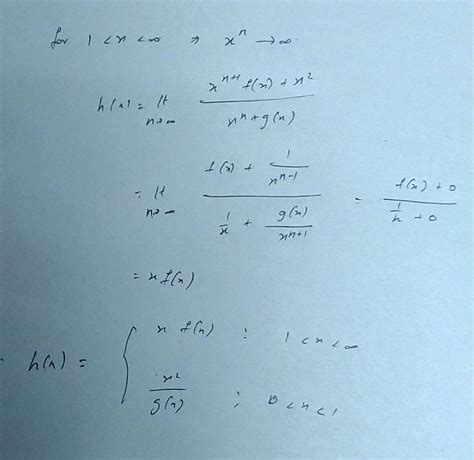 for 1 < x < ∞ ⇒ xⁿ → ∞
h(x) = lt n→∞ (xⁿ⁺¹ f(x) + x²) / (xⁿ + g(x))
= lt n→∞ (f(x) + 1/xⁿ⁻¹) / (1/x + g(x)/xⁿ⁺¹) = (f(x) + 0) / (1/x + 0)
= x f(x)
h(x) = { x f(x) ; 1 < x < ∞
x²/g(x) ; 0 < x < 1